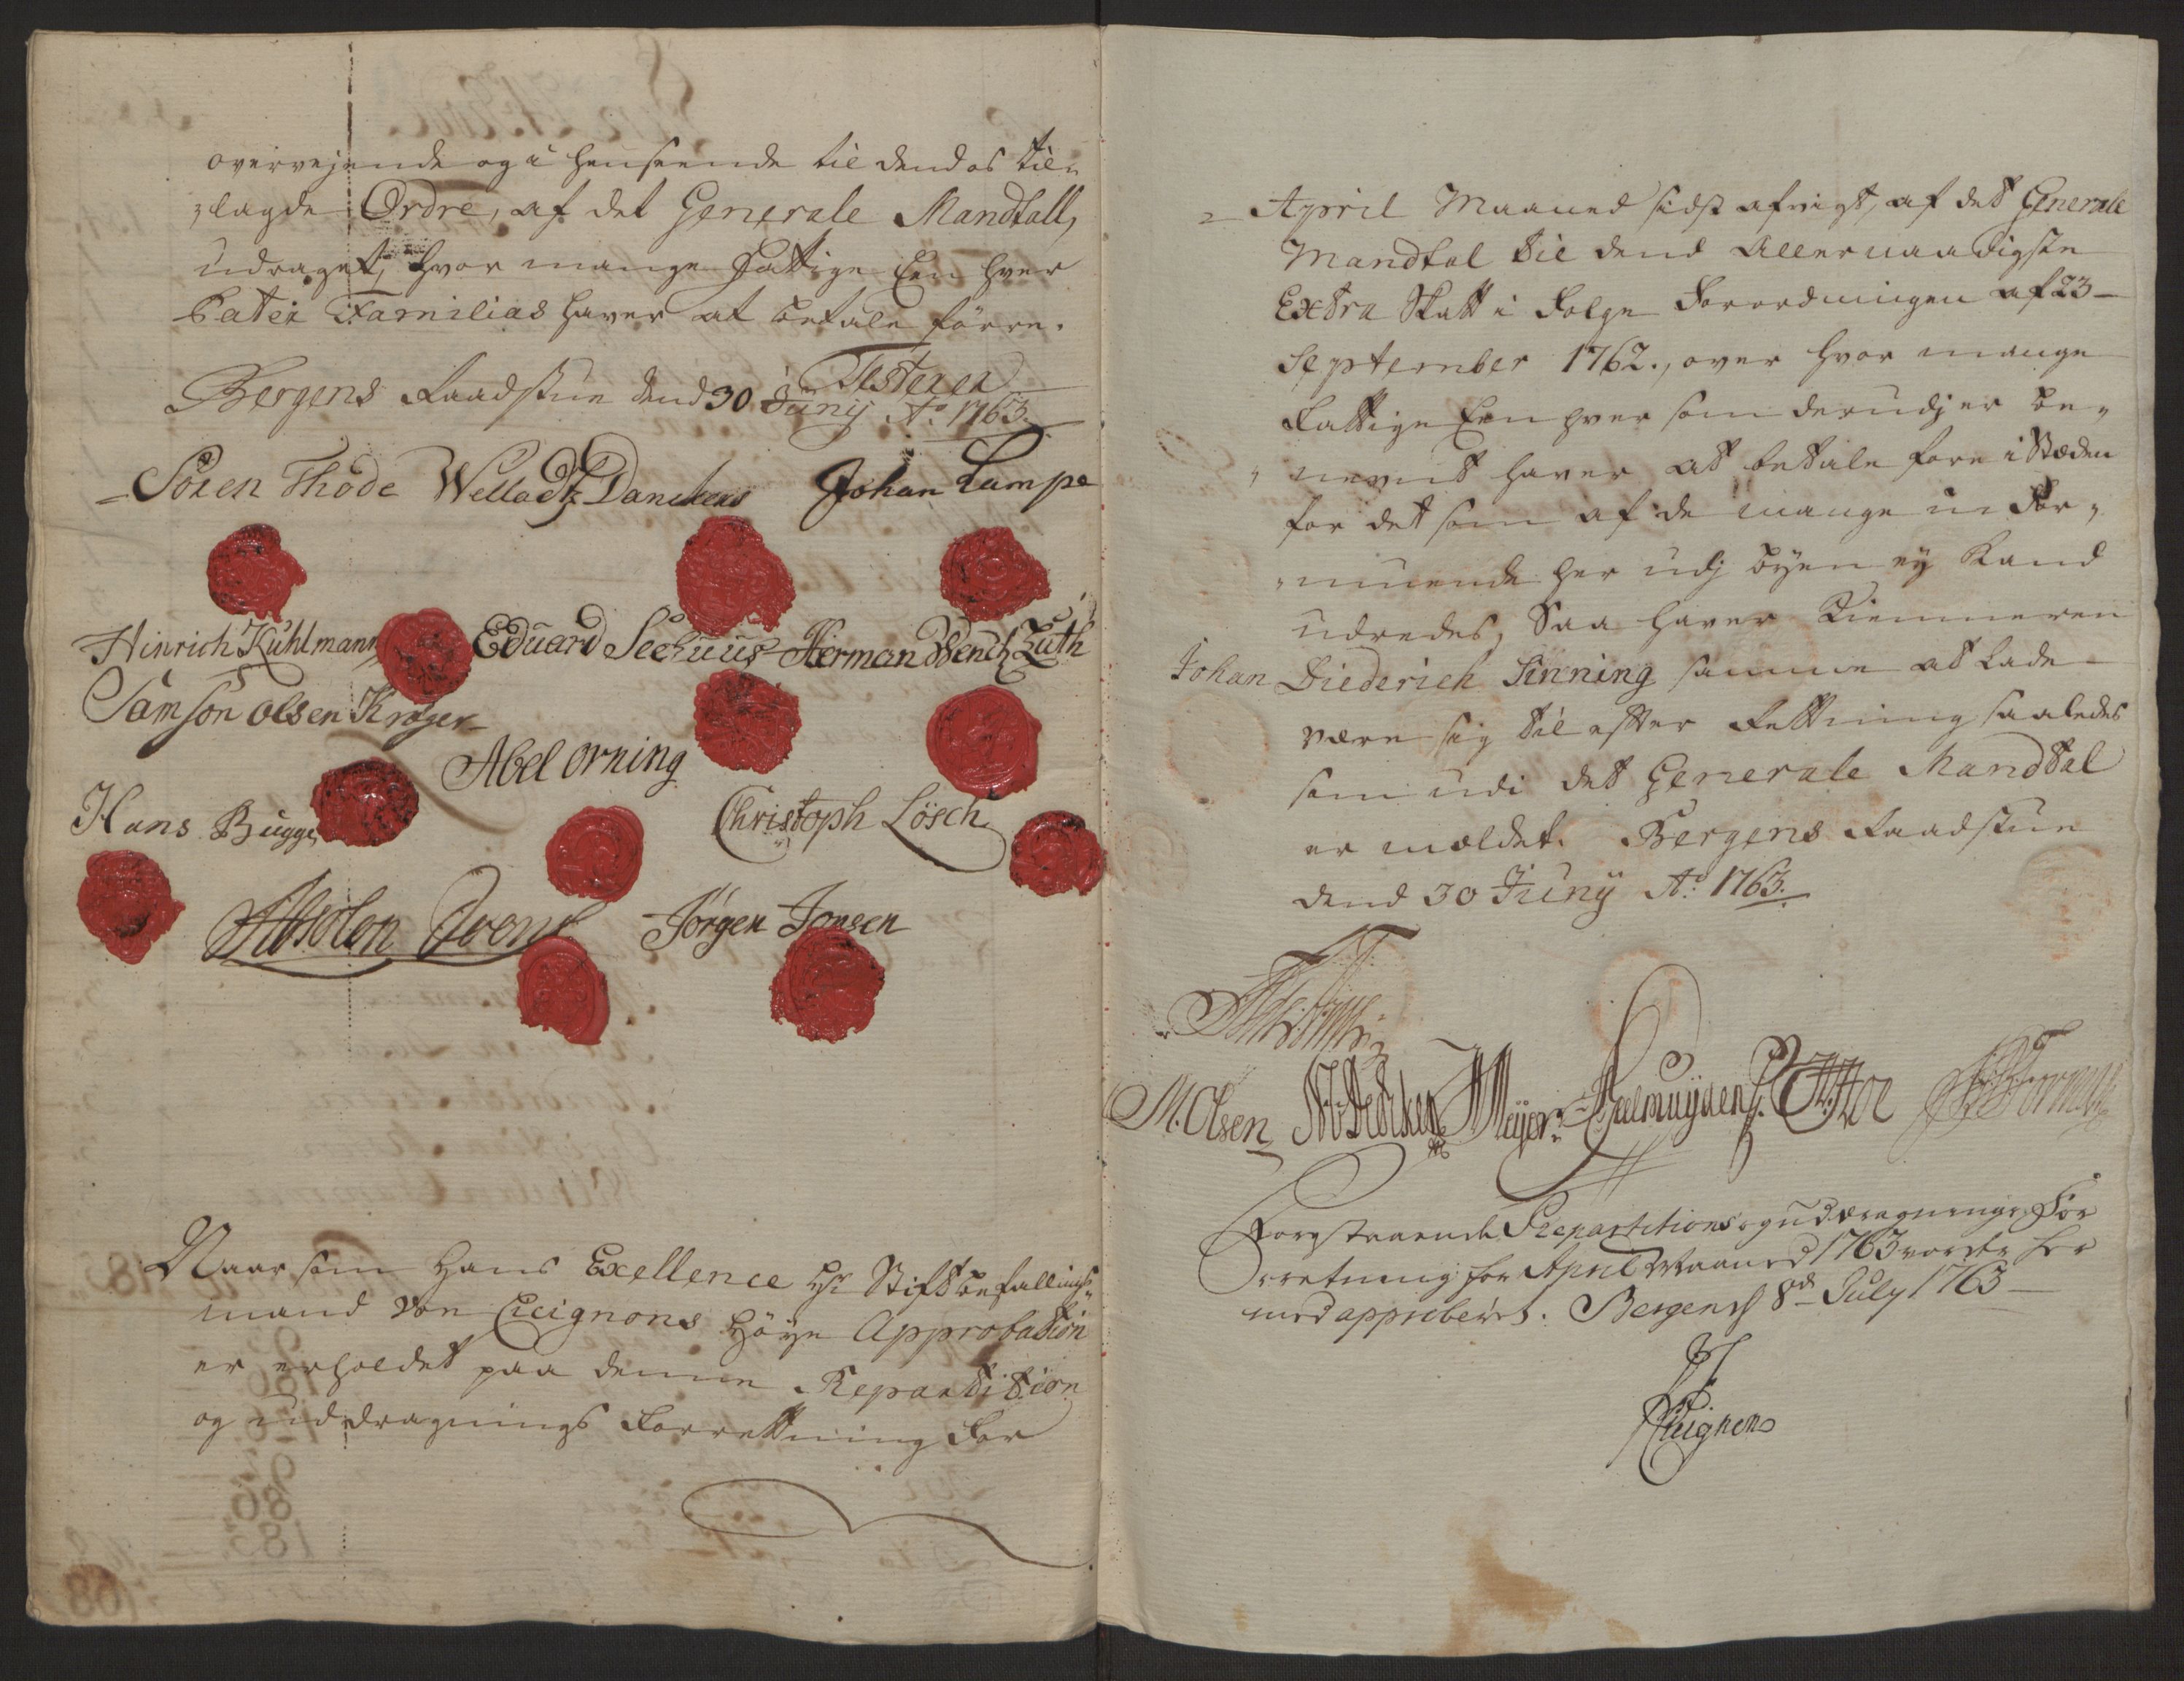 overvejende og i henseende til dend os til„
„lagde Ordre, af det Generale Mandtall,
udraget, hvor mange fattige Een hver
Pater Familias haver at betale forre.
Testerer
Bergens Raadstue dend 30 Junij Ao 1763.
Sören Thode Wellad Danckers Johan Lampe
Hinrich Kuhlmann Eduard Seehuus Herman Wench Zuth
Samson olsen Kröger
Abel orning
Hans Bugge Christoph Lösch
Absolon Svens Jörgen Jonsen
Naar som Hans Exellence Hr Stiftbefallings„
mand von Cicignons Höye Approbation
er erholdet paa denne Repartition
og uddragnings Forrettning for
April Maaned sidst afvigt, af det Generale
Mandtal til dend Allernaadigste
Extra Skatt i Folge Forordningen af 23
September 1762., over hvor mange
Fattige Een hver som derudj er be„
„nevnt haver at betale fore i Stæden
for det som af de mange u For„
„muende her udj byen ey kand
udredes, Saa haver Kiemneren
Johan Diederich Finning samme at lade
være sig til efter Rettning saaledes
som udi det Generale Mandtal
er mældet. Bergens Raadstue
dend 30 Junij Ao 1763.
M. Olsen Meyer
Forestaaende Repartitions og uddragnings For
rretning for April Maaned 1763 vorder her
med approberet. Bergen d 8de July 1763
Cicignon